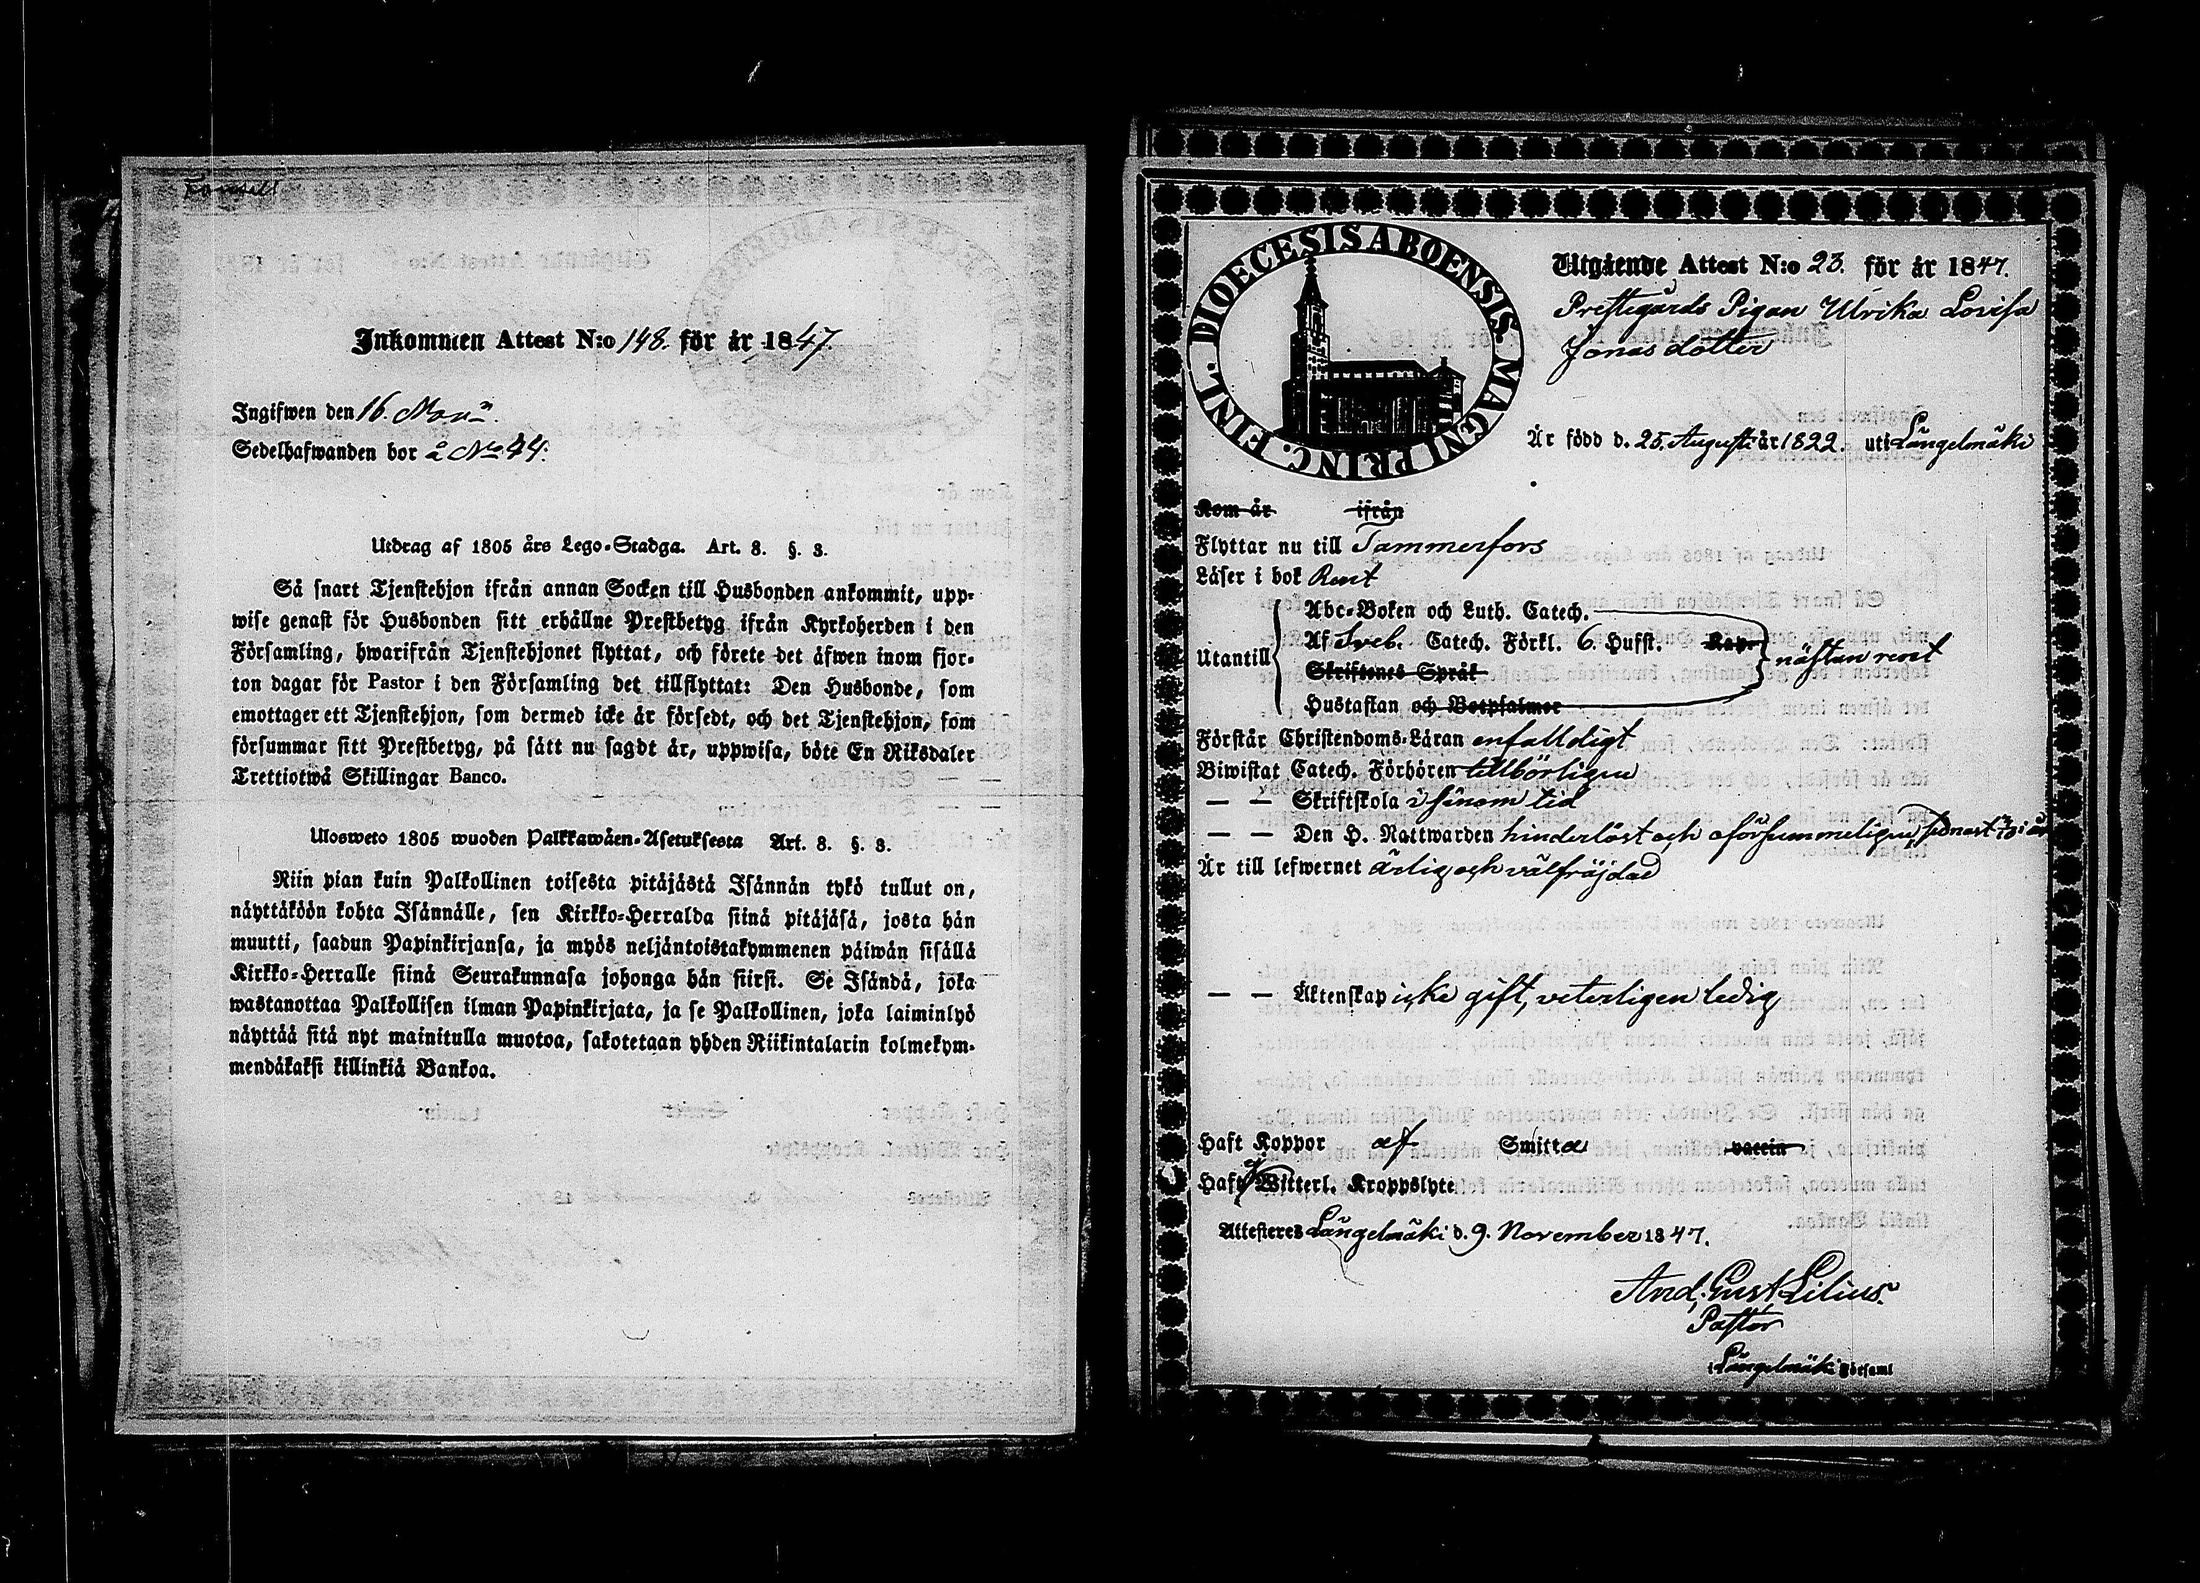 Inkommen Attest N:o 148. för år 1847.
Ingifwen den 16. Nov.
Sedelhafwanden bor å No 44.
Utdrag af 1805 års Lego-Stadga. Art. 8. §. 3.
Så snart Tjenstehjon ifrån annan Socken till Husbonden ankommit, upp-
wise genast för Husbonden sitt erhållne Prestbetyg ifrån Kyrkoherden i den
Församling, hwarifrån Tjenstehjonet flyttat, och förete det äfwen inom fjor-
ton dagar för Pastor i den Församling det tillflyttat: Den Husbonde, som
emottager ett Tjenstehjon, som dermed icke är försedt, och det Tjenstehjon, som
försummar sitt Prestbetyg, på sätt nu sagdt är, uppwisa, böte En Riksdaler
Trettiotwå Skillingar Banco.
Ulosweto 1805 wuoden Palkkawäen-Asetuksesta Art. 8. §. 3.
Niin pian kuin Palkollinen toisesta pitäjästä Isännän tykö tullut on,
näyttäköön kohta Isännälle, sen Kirkko-Herralda siinä pitäjäsä, josta hän
muutti, saadun Papinkirjansa, ja myös neljäntoistakymmenen päiwän sisällä
Kirkko-Herralle siinä Seurakunnasa johonga hän siirsi. Se Isändä, joka
wastanottaa Palkollisen ilman Papinkirjata, ja se Palkollinen, joka laiminlyö
näyttää sitä nyt mainitulla muotoa, sakotetaan yhden Riikintalarin kolmekym-
mendäkaksi killinkiä Bankoa.
DIOECESIS ABOENSIS. MAGNI PRINC. FINL.
Utgående Attest N:o 23. för år 1847.
Prestegårds Pigan Ulrika Lovisa
Jonas dotter
Är född d. 25. August år 1822. uti Längelmäki
Kom år ifrån
Flyttar nu till Tammerfors
Läser i bok Rent
Utantill
Abc-Boken och Luth. Catech.
Af Sveb. Catech. Förkl. 6. Hufst. Kap.
Skriftenes Språk
Hustaflan och Botpsalmer
nästan rent
Förstår Christendoms-Läran enfaldigt
Biwistat Catech. Förhören tillbörligen
— — Skriftskola i sinom tid
— — Den H. Nattwarden hinderlöst och oförsummeligen, sednast i år
Är till lefwernet ärlig och välfräjdad
— — Äktenskap icke gift, veterligen ledig
Haft Koppor af Smitta vaccin
Haft Witterl. Kroppslyte
Attesteres Längelmäki d. 9. November 1847.
And. Gust. Lilius.
Pastor
i Längelmäki Församl